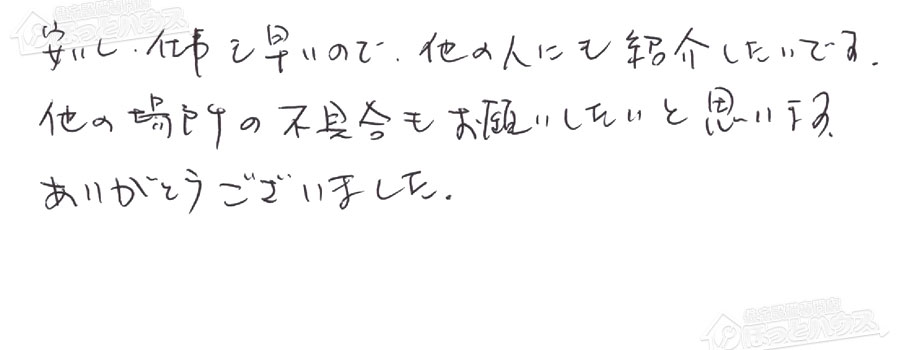 安いし、仕事も早いので、他の人にも紹介したいです。
他の場所の不具合もお願いしたいと思います。
ありがとうございました。
ほっとハウス
ほっとハウス